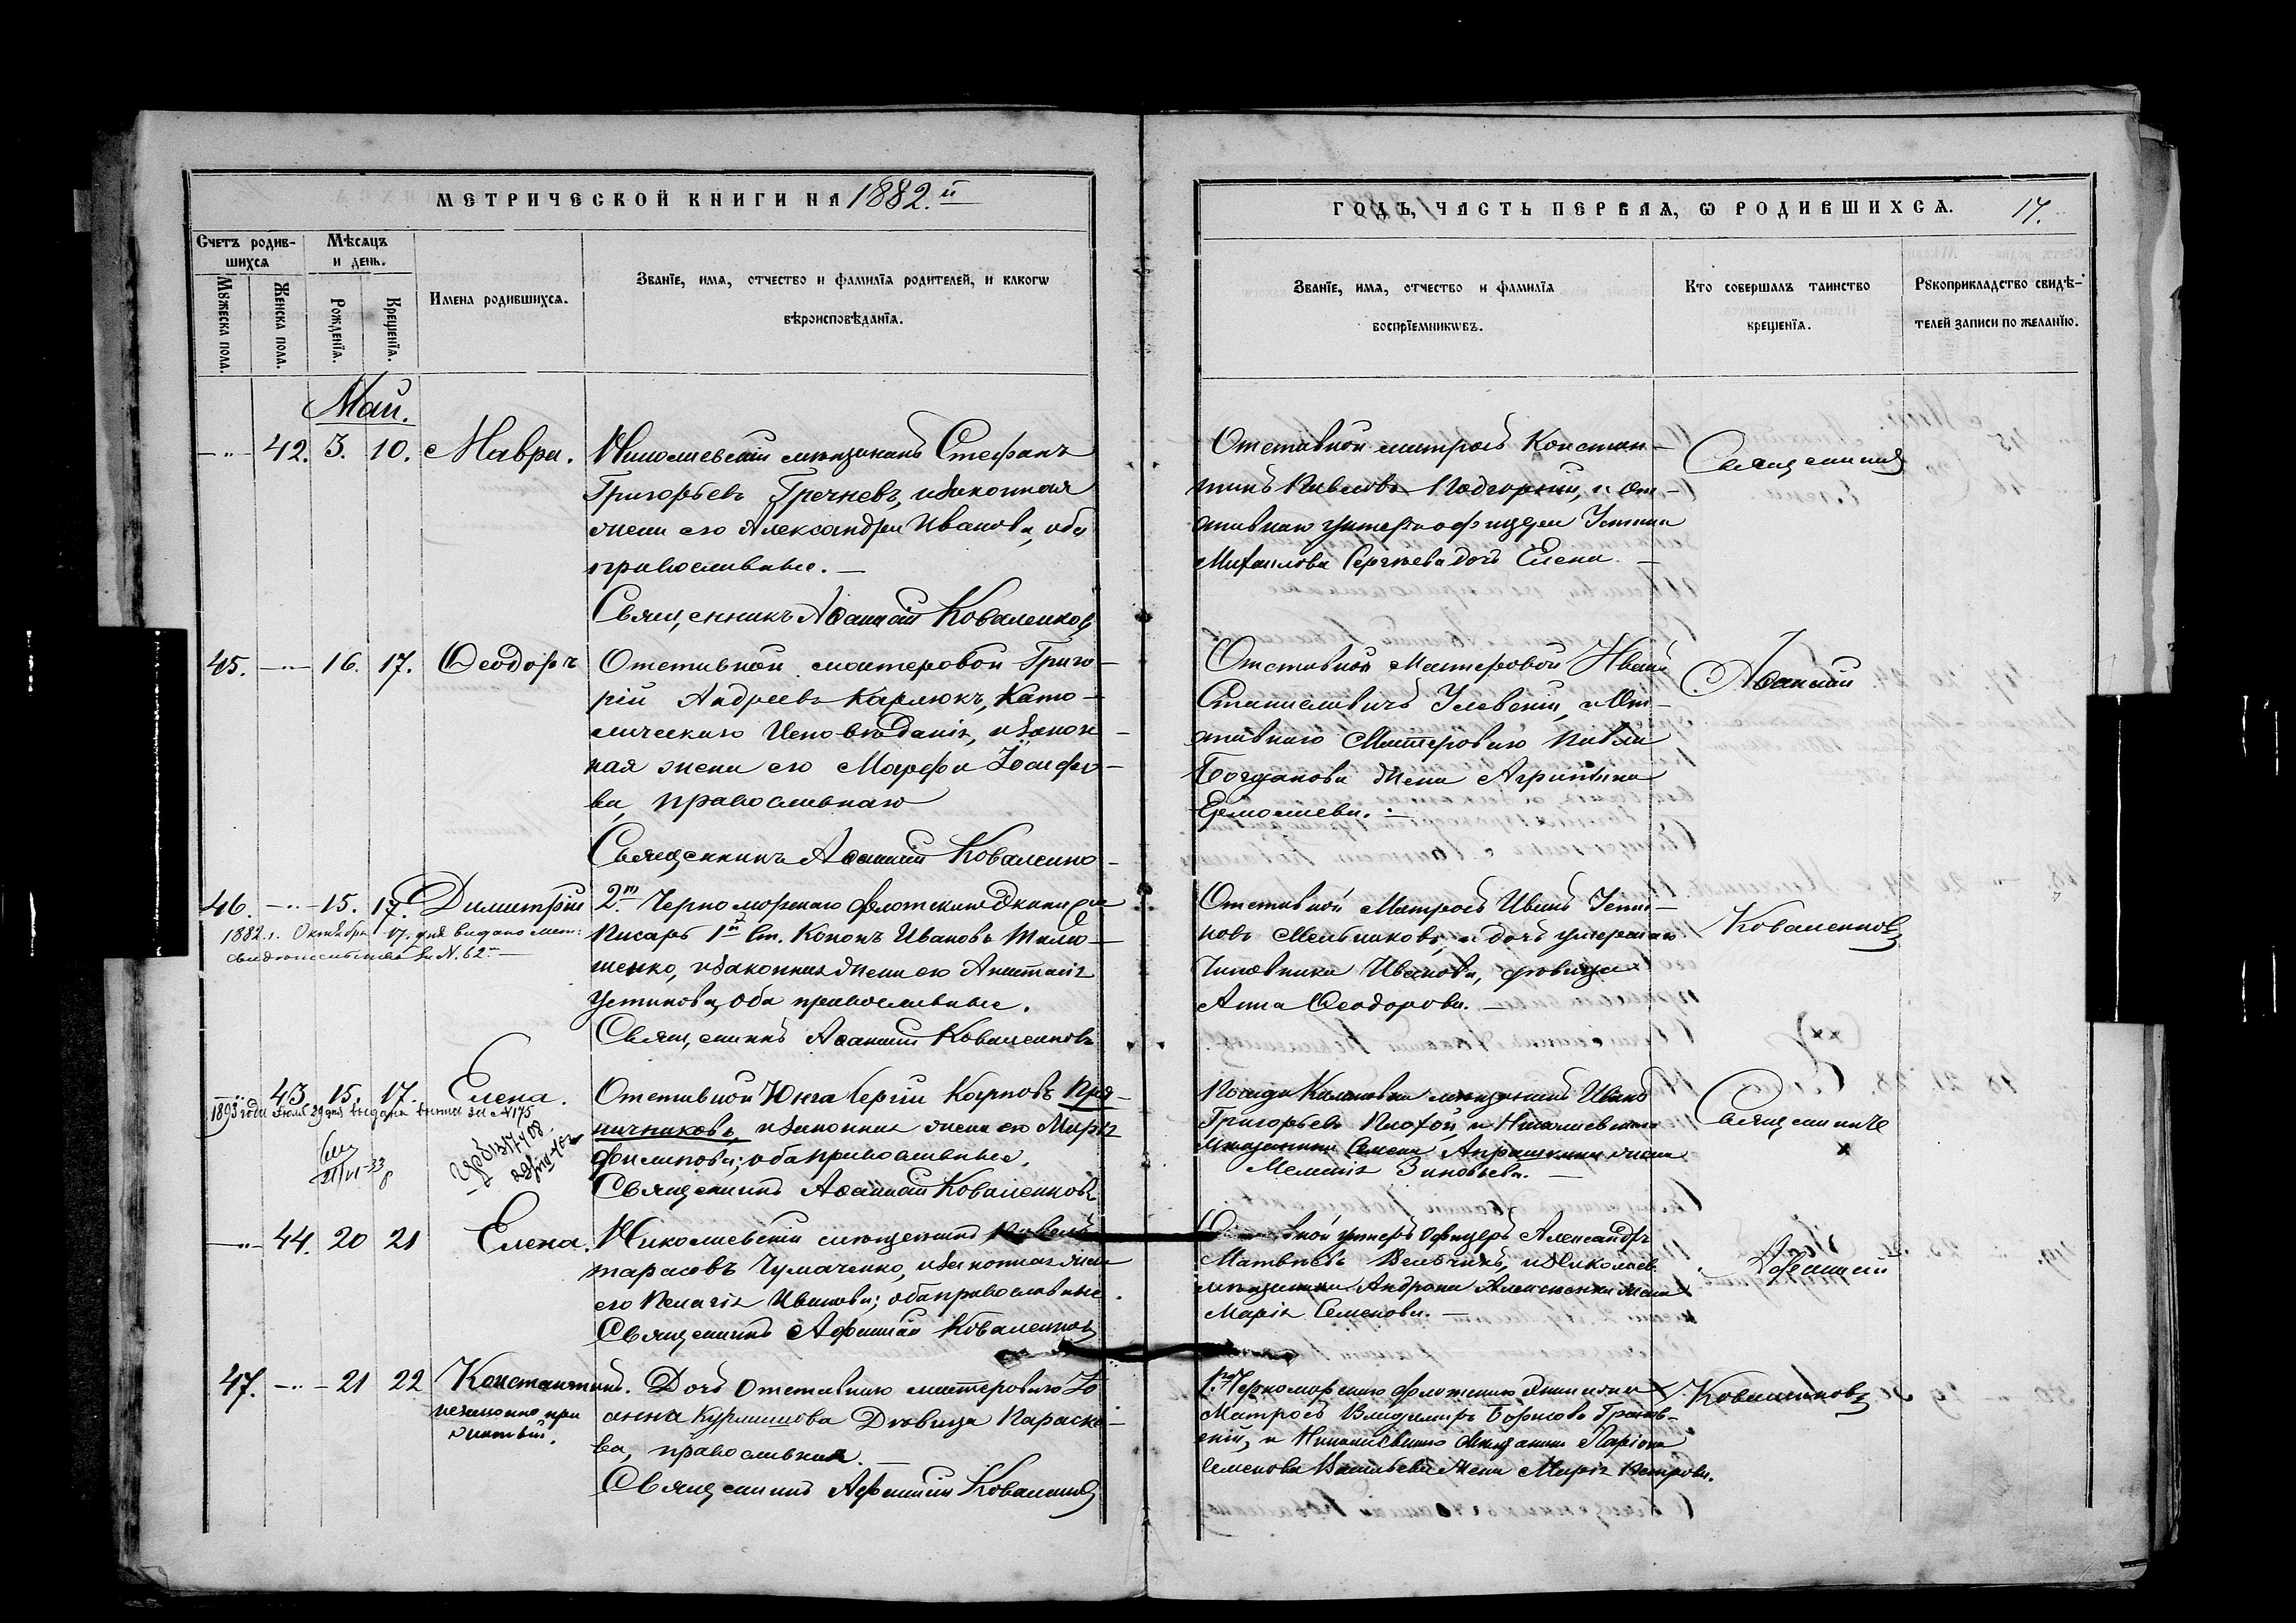 МЕТРИЧЕСКОЙ КНИГИ НА 1882.й
Счетъ родив-
шихся
Мѣсяцъ
и день.
Мꙋжеска пола.
Женска пола.
Рожденїя.
Крещенїя.
Имена родившихся.
Званїе, имя, отчество и фамилїя родителей, и какогѡ
вѣроисповѣданїя.
Май.
-"- 42. 3. 10. Мавра.
Николаевскій мѣщанинъ Стефанъ
Григорьевъ Гречневъ, и законная
жена его Александра Иванова, оба
православные. —
Священникъ Аѳанасій Коваленковъ
45. -"- 16. 17. Ѳеодоръ
Отставной мастеровой Григо-
рій Андреевъ Карлюкъ, Като-
лическаго Исповѣданія, и закон-
ная жена его Марфа Іосифо-
ва, православная
Священникъ Аѳанасій Коваленко-
46. -"- 15. 17. Димитрій
1882 г. Октября 17. дня выдано мет:
свидѣтельство за N. 62
2го Черноморскаго флотскаго Экипажа
Писарь 1й Ст. Кононъ Ивановъ
шенко, и законная жена его Анастасія
Устинова, оба православные.
Священникъ Аѳанасій Коваленковъ
-"- 43. 15. 17. Елена.
1893 года Іюля 29 дня выдана выпись за N 175
Отставной Юнга Сергій Карповъ Пря-
ничниковъ, и законная жена его Марія
Филипова; оба православные.
Священникъ Аѳанасій Коваленковъ
-"- 44. 20 21 Елена.
Николаевскій мѣщанинъ Павелъ
Тарасовъ Чумаченко, и законная жена
его Пелагія Иванова; оба православные.
Священникъ Афанасій Коваленковъ
47. -"- 21 22 Константинъ.
незаконно при
житый.
Дочь отставного мастерового Іо
анна Курминова Дѣвица Параске-
ва, православная. —
Священникъ Афанасій Коваленковъ
ГОДЪ, ЧАСТЬ ПЕРВАЯ, Ѡ РОДИВШИХСЯ. 17.
Званїе, имя, отчество и фамилїя
воспрїемникѡвъ.
Кто совершалъ таинство
крещенїя.
Рꙋкоприкладство свидѣ-
телей записи по желанїю.
Отставной матросъ Констан-
тинъ Павловъ Подгорный, и От-
ставнаго унтеръ офицера Устина
Михаилова Сергѣева дочь Елена. —
Отставной Мастеровой Иванъ
Станиславичъ и От-
ставнаго Мастероваго Павла
Богданова жена Агрипина
Ермолаева. —
Отставной Матросъ Иванъ
новъ Мельниковъ, и дочь умершаго
Чиновника Иванова, дѣвица
Анна Ѳеодорова. —
мѣщанинъ Иванъ
Григорьевъ Плохой, и Николаевскаго
мѣщанина Семена жена
Меланія Зиновьева. —
унтеръ офицеръ Александръ
Матвѣевъ Величкъ, и Николаев.
мѣщанина Андрона жена
Марія Семенова. —
1го Черноморскаго флотскаго Экипажа
Матросъ Владимиръ Борисовъ
скій, и Николаевскаго мѣщанина Ларіона
Семенова Васильева жена Марія Петрова.
Священникъ
Аѳанасій
Коваленковъ
Священникъ
Аѳанасій
Коваленковъ